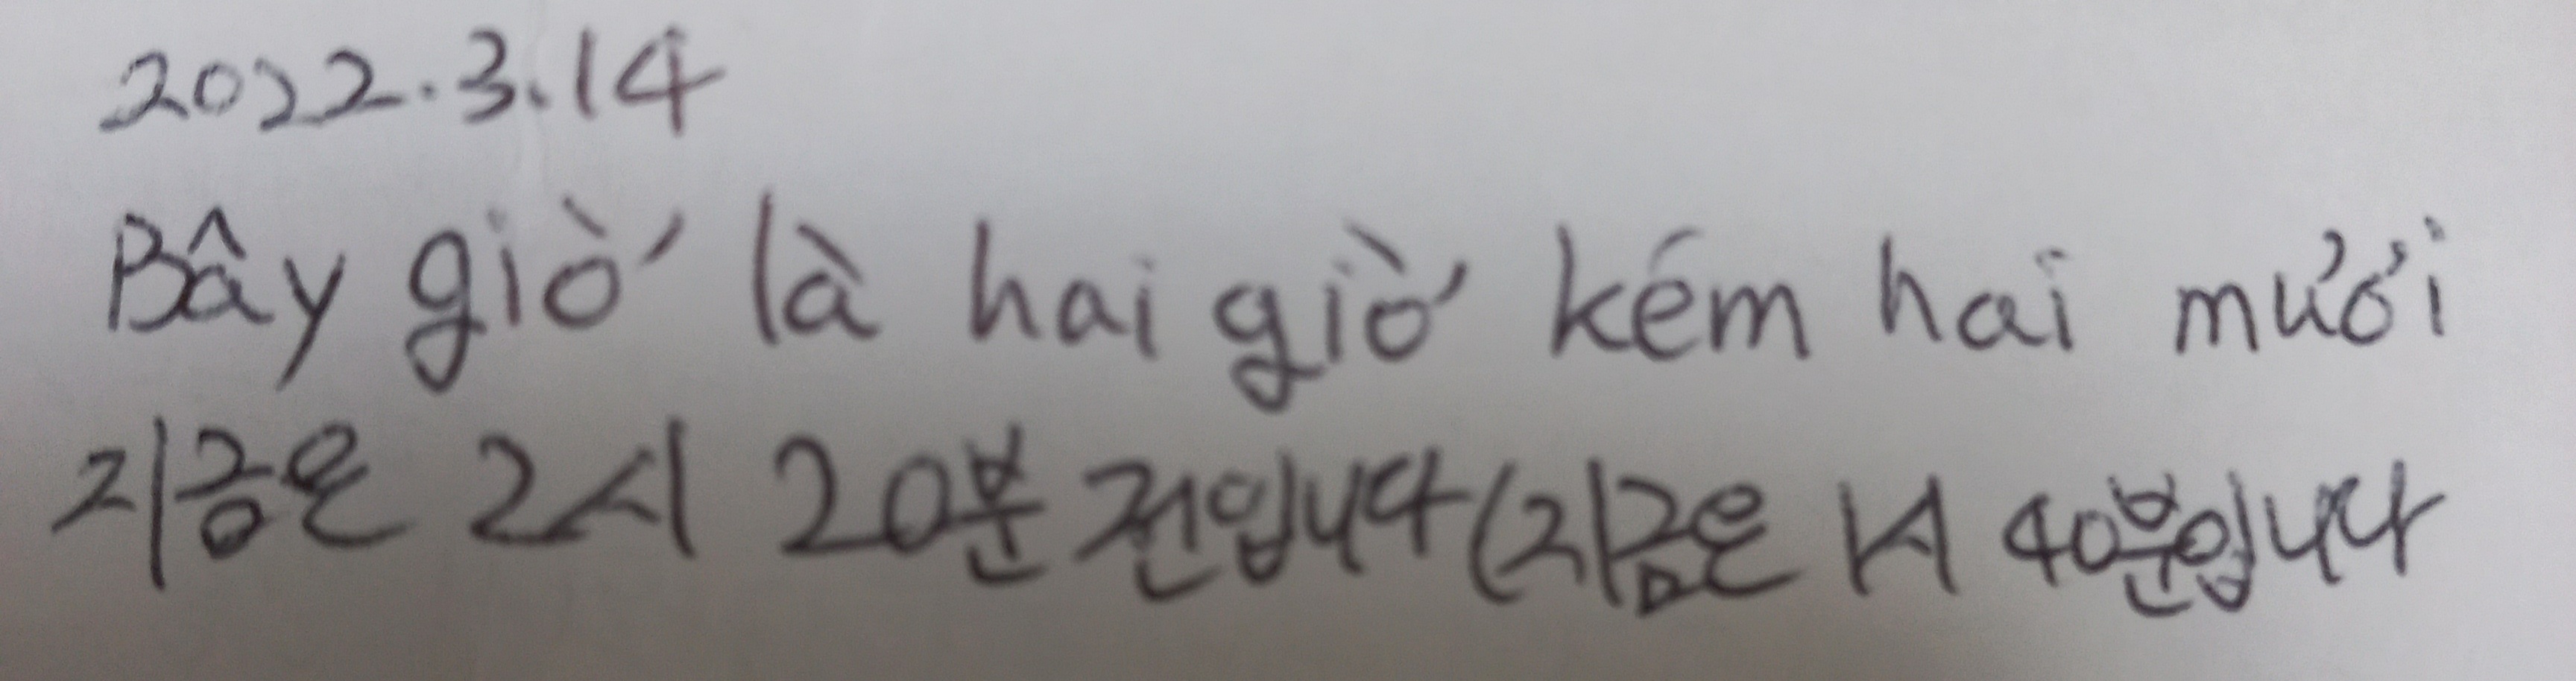 2022.3.14
Bây giờ là hai giờ kém hai mươi
지금은 2시 20분 전입니다 (지금은 1시 40분입니다